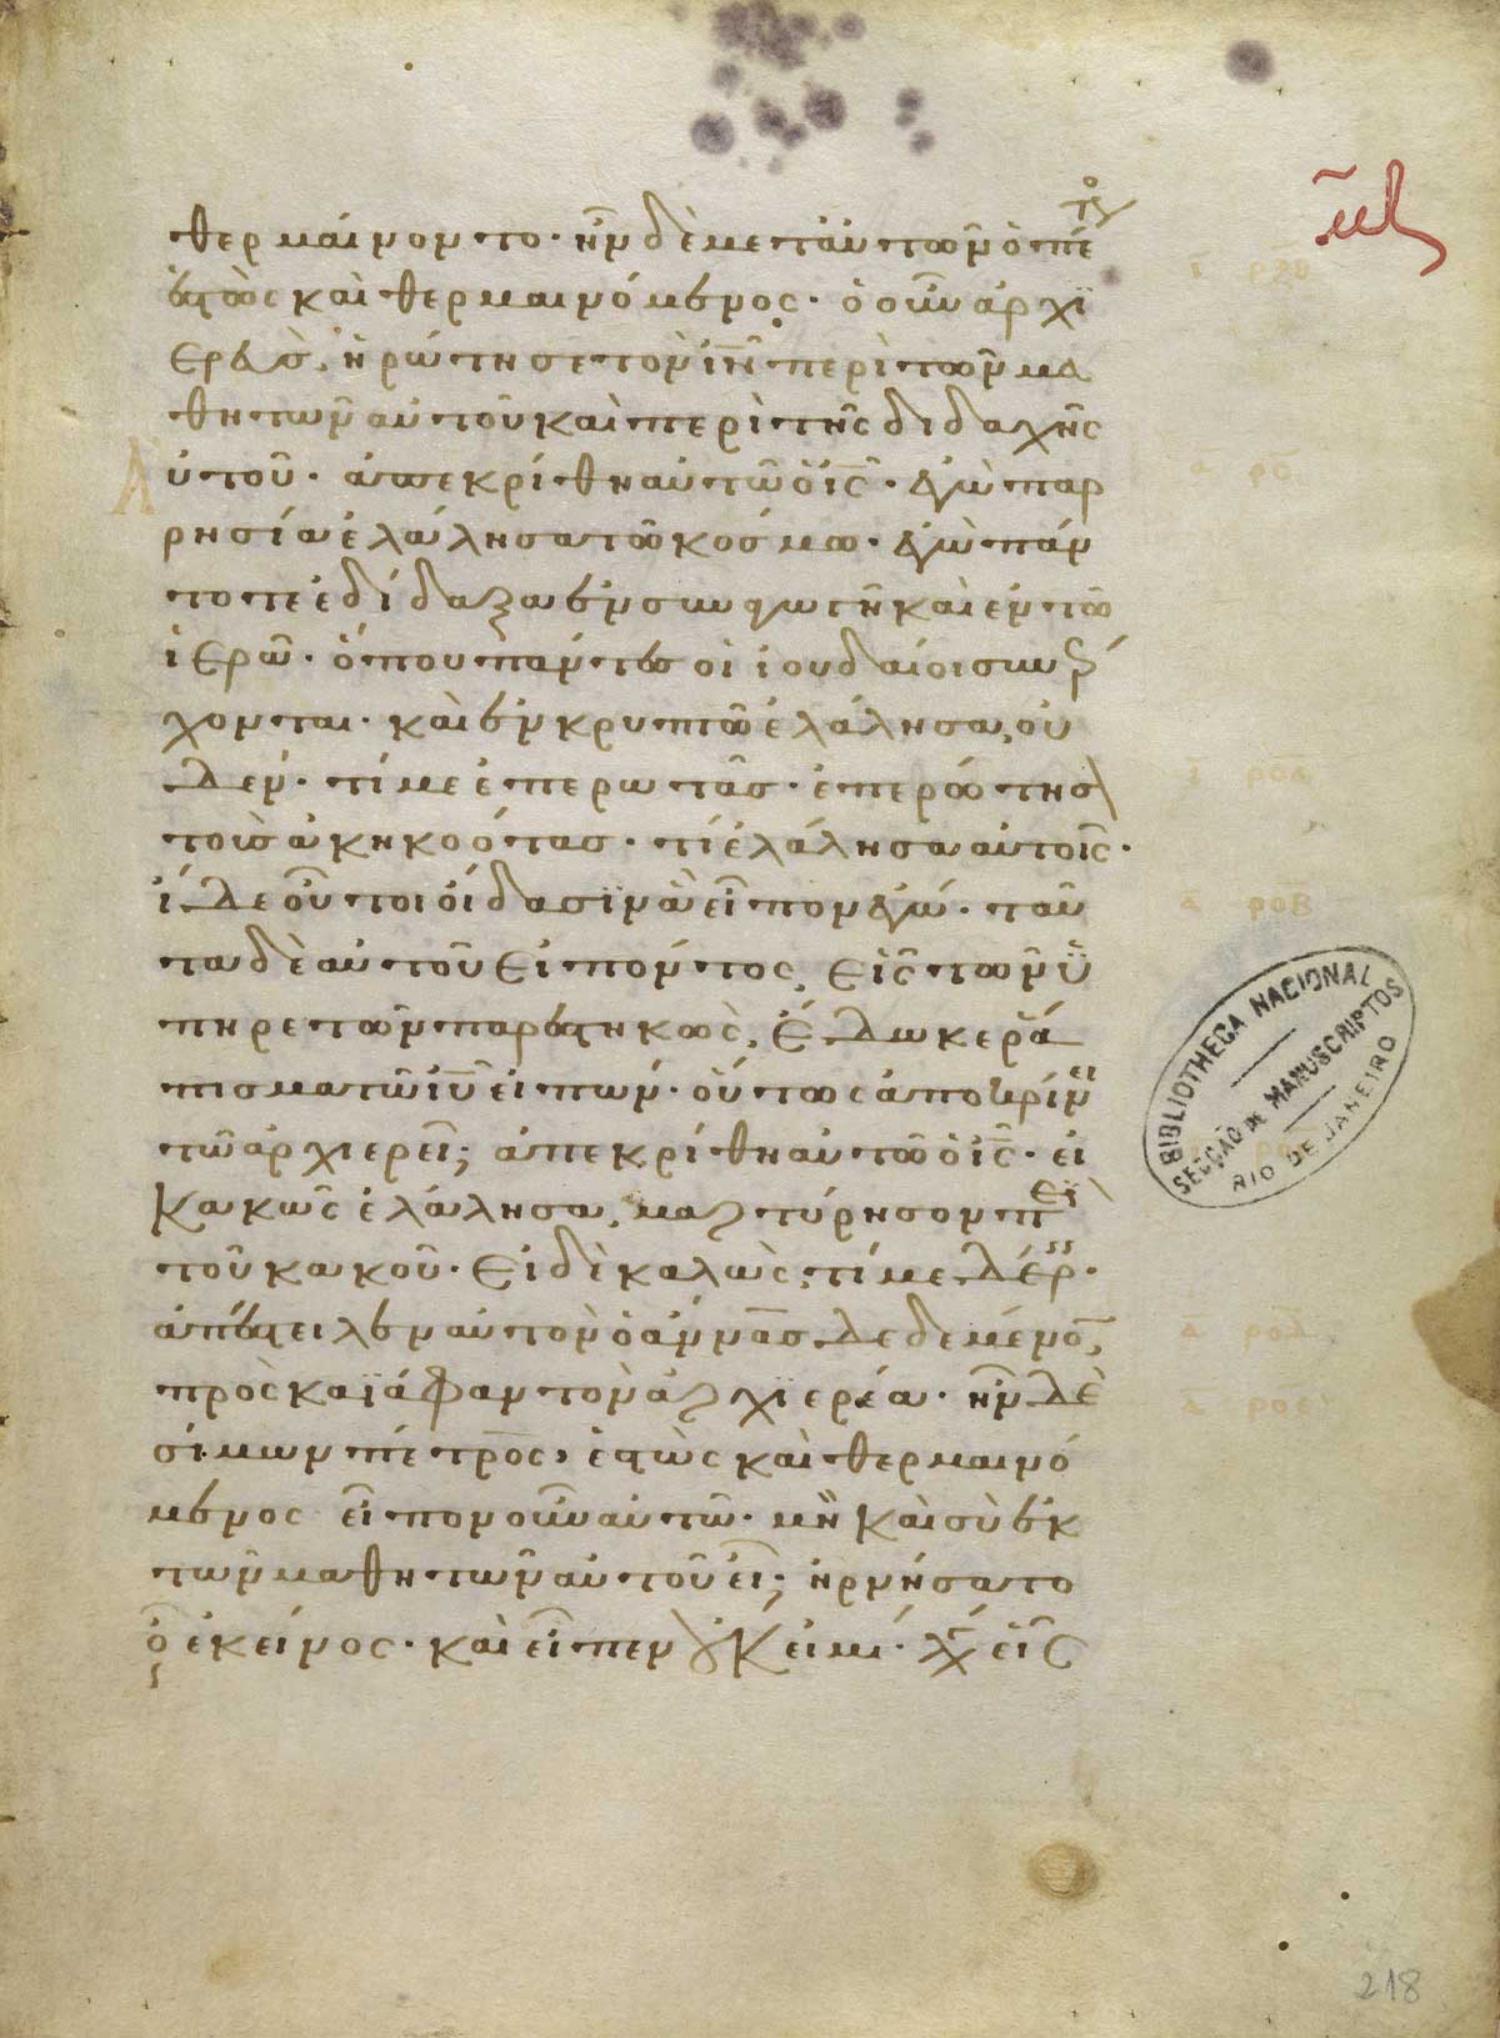 θερμαίνοντο· ἦν δὲ μετ' αὐτῶν ὁ πέτρος
ἑστὼς καὶ θερμαινόμενος· ὁ οὖν ἀρχϊ
ερεὺσ, ἠρώτησε τὸν ἰν̅ περὶ τῶν μα
θητῶν αὐτοῦ καὶ περὶ τῆς διδαχῆς
Αὐτοῦ· ἀπεκρίθη αὐτῶ ὁ ἰς̅· ἐγὼ παρ
ρησία ἐλάλησα τῶ κοσμω· ἐγὼ πάν
τοτε ἐδίδαξα ἐν συναγωγῆ καὶ ἐν τῶ
ἱερῶ· ὅπου πάντεσ οἱ ἰουδαίοι συνέρ
χονται· καὶ ἐν κρυπτῶ ἐλάλησα, οὐ
δέν· τί με ἐπερωτᾶσ· ἐπερώτησον
τοὺσ ἀκηκοότασ· τί ἐλάλησα αὐτοῖς·
ἴδε οὗτοι οἴδασϊν ἃ εἶπον ἐγώ· ταῦ
τα δὲ αὐτοῦ εἰπόντος, εἷς τῶν ὑ
πηρετῶν παρεστηκὼς, ἔδωκε ῥά
πισμα τῶ ἰυ̅ εἰπών· οὕτως ἀποκρίνη
τῶ ἀρχιερεῖ; ἀπεκρίθη αὐτῶ ὁ ἰς̅· εἰ
κακῶς ἐλάλησα, μαρτύρησον περὶ
τοῦ κακοῦ· εἰ δὲ καλῶς, τί με δέρεις·
ἀπέστειλεν αὐτὸν ὁ ἄννασ δεδεμένον,
πρὸς καϊάφαν τὸν ἀρχϊερέα· ἦν δὲ
σίμων πέτρος, ἑστὼς καὶ θερμαινό
μενος εἶπον οὖν αὐτῶ· μὴ καὶ σὺ ἐκ
τῶν μαθητῶν αὐτοῦ εἶ; ἠρνήσατο
ὁ ἐκεῖνος· καὶ εἶπεν οὐκ εἰμί· λέγει εἷς
ροα
ροβ
ροε
BIBLIOTHECA NACIONAL
SECÇÃO DE MANUSCRIPTOS
RIO DE JANEIRO
218